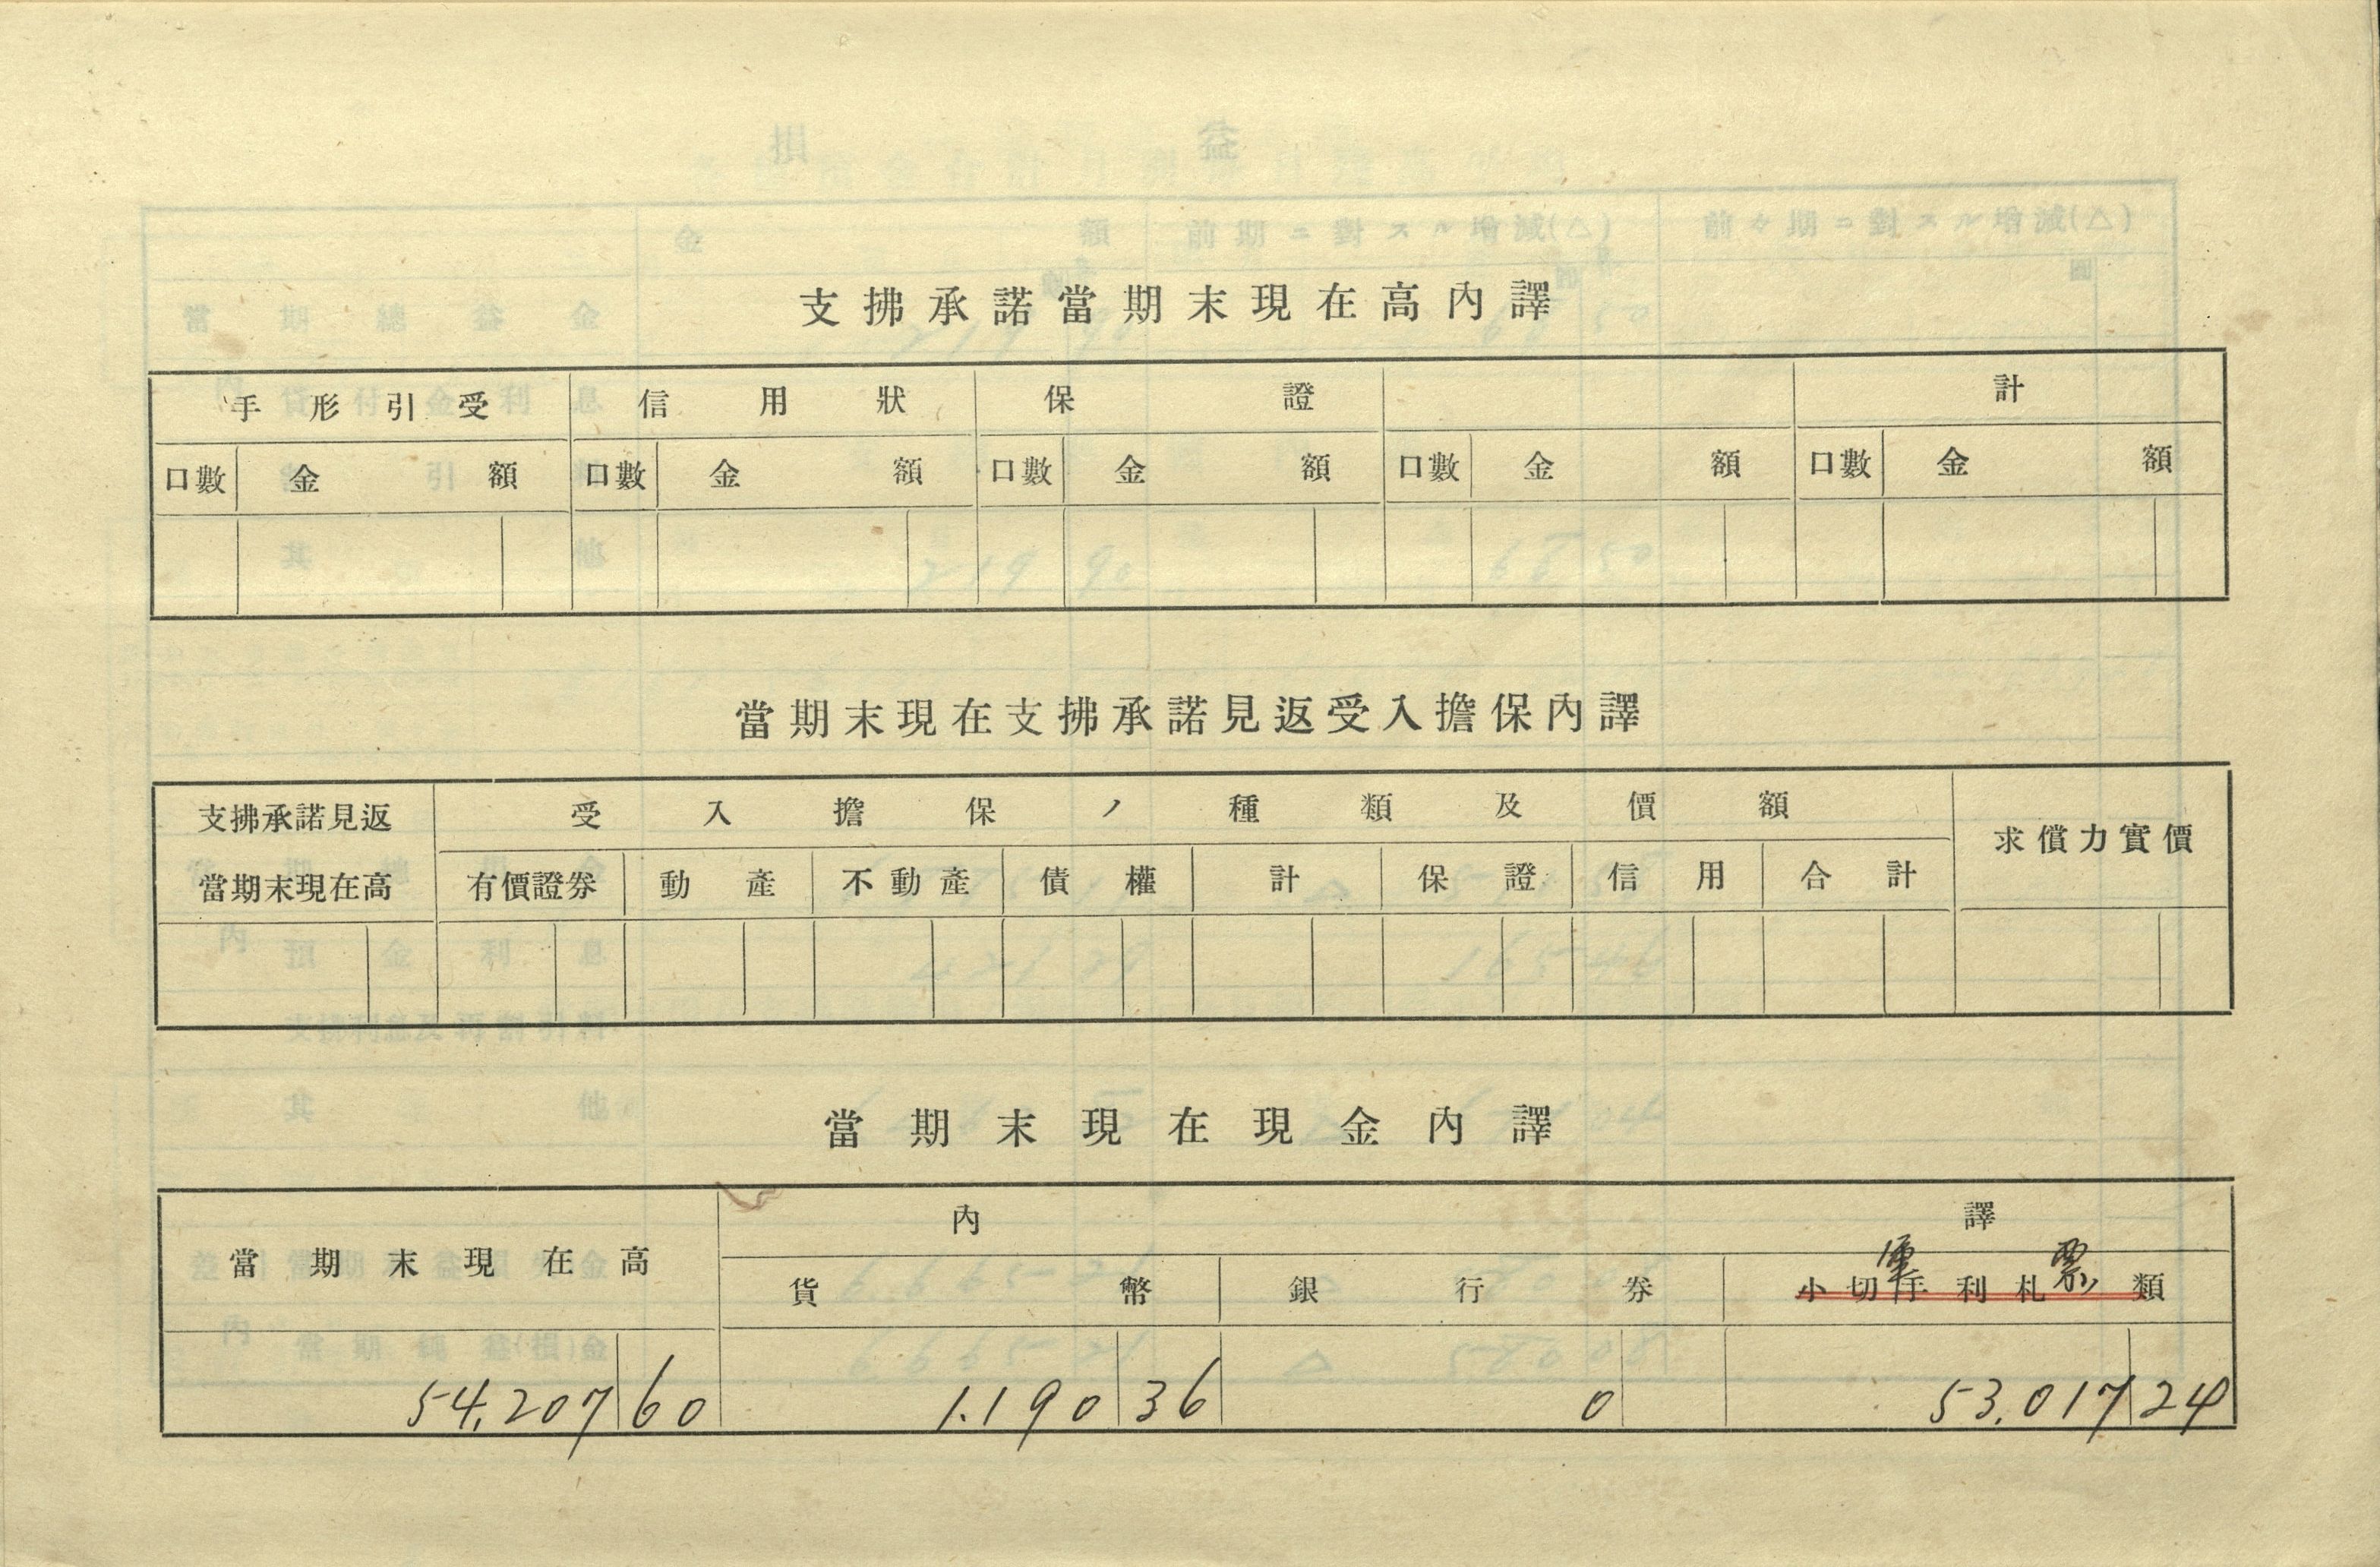 支拂承諾當期末現在高內譯
手形引受 信用狀 保證 計
口數 金額 口數 金額 口數 金額 口數 金額 口數 金額
當期末現在支拂承諾見返受入擔保內譯
支拂承諾見返當期末現在高 受入擔保ノ種類及價額 求償力實價
有價證券 動產 不動產 債權 計 保證 信用 合計
當期末現在現金內譯
當期末現在高 內譯
軍票
貨幣 銀行券 小切手利札類
54,207 60 1.190 36 0 53.017 24